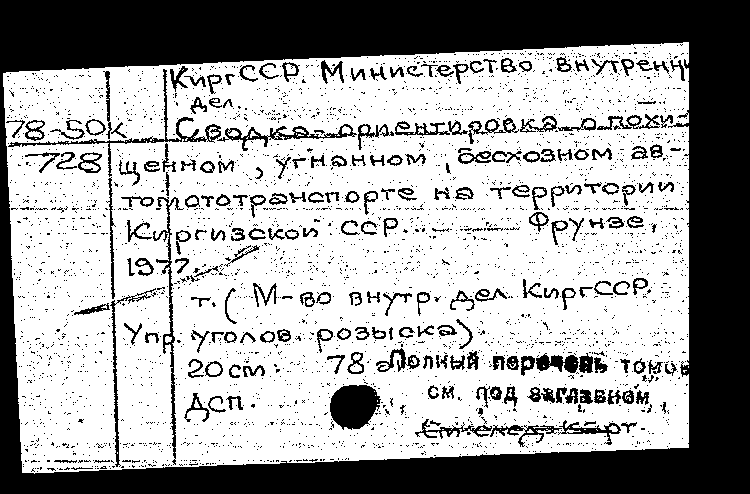 КиргССР. Министерство внутренни
дел.
78-50к Сводка-ориентировка о похи-
728 щенном, угнанном, бесхозном ав-
томототранспорте на территории
Киргизской ССР. — Фрунзе,
1977.
т. (М-во внутр. дел КиргССР.
Упр. уголов. розыска).
20 см. 78 Полный перечень томов
ДСП. см. под заглавном
карт.